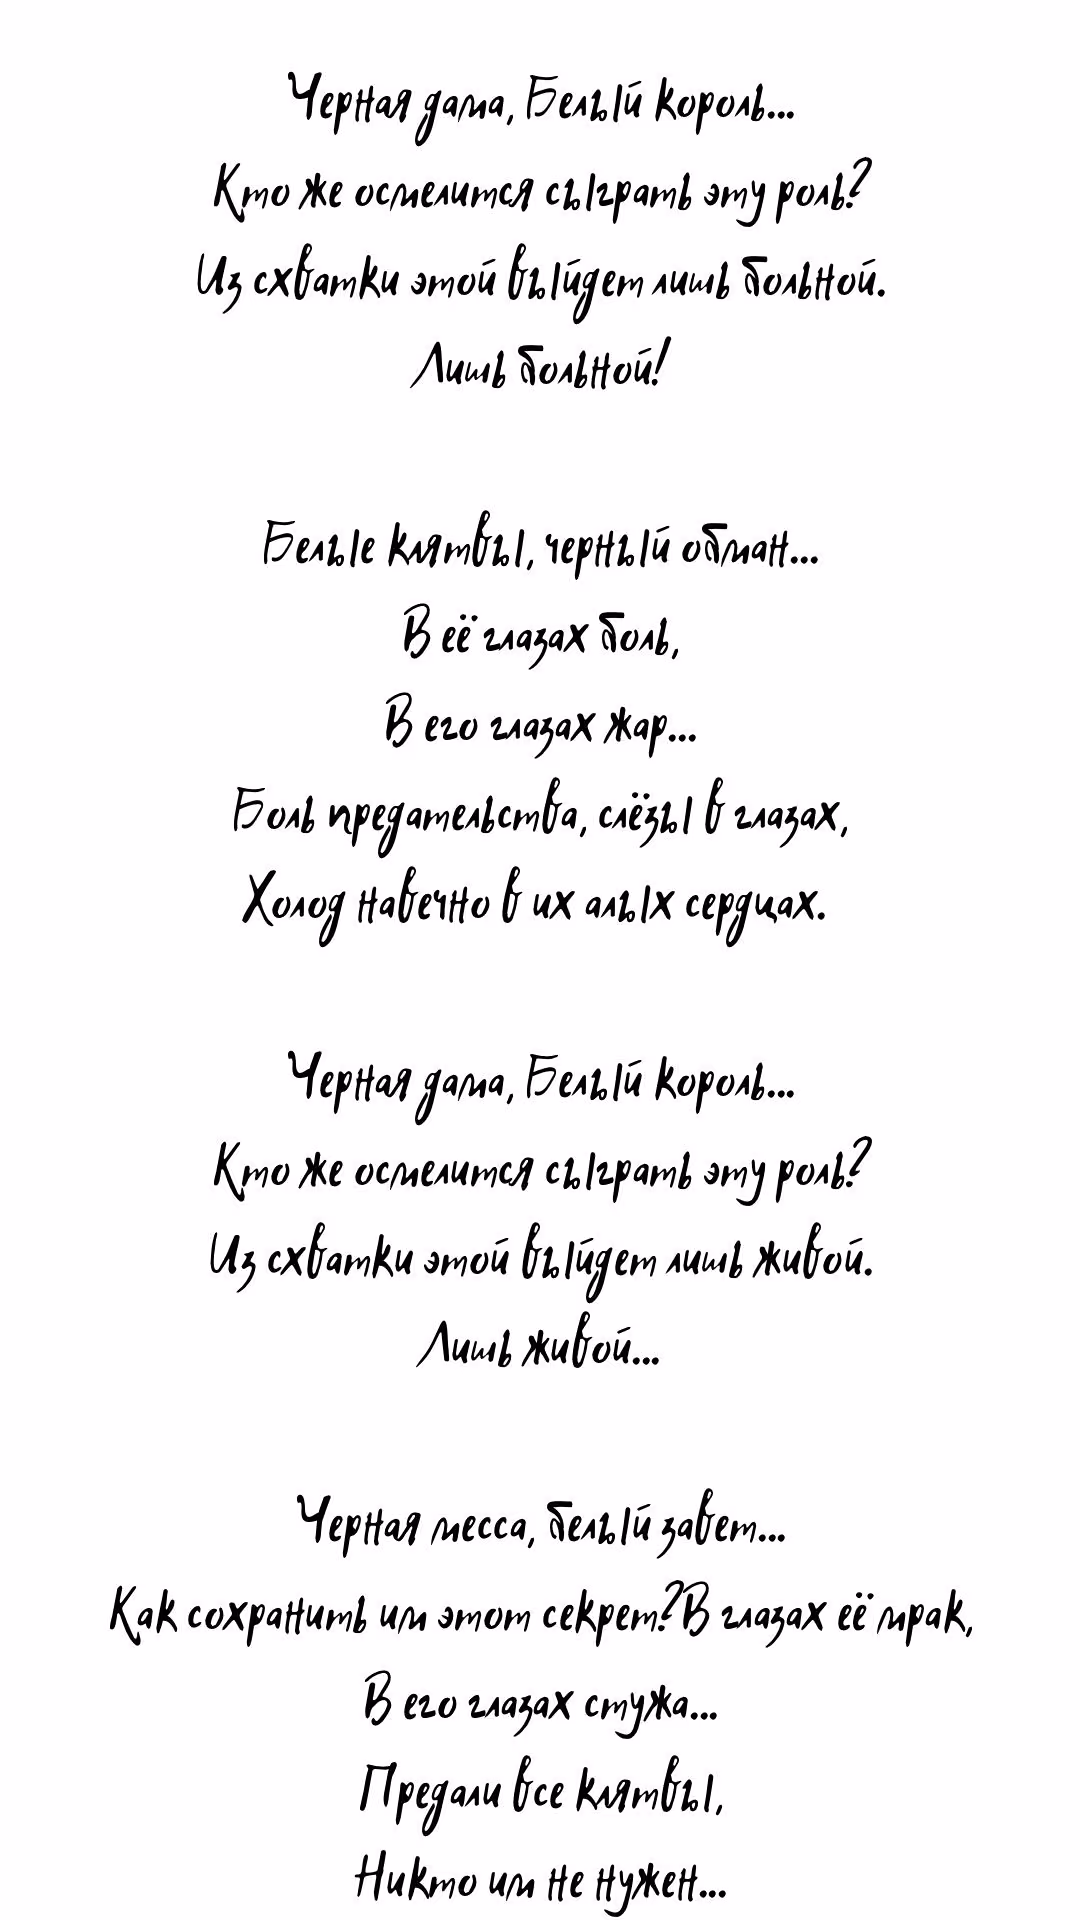 Черная дама, Белый король...
Кто же осмелится сыграть эту роль?
Из схватки этой выйдет лишь больной.
Лишь больной!
Белые клятвы, черный обман...
В её глазах боль,
В его глазах жар...
Боль предательства, слёзы в глазах,
Холод навечно в их алых сердцах.
Черная дама, Белый король...
Кто же осмелится сыграть эту роль?
Из схватки этой выйдет лишь живой.
Лишь живой...
Черная месса, белый завет...
Как сохранить им этот секрет?В глазах её мрак,
В его глазах стужа...
Предали все клятвы,
Никто им не нужен...